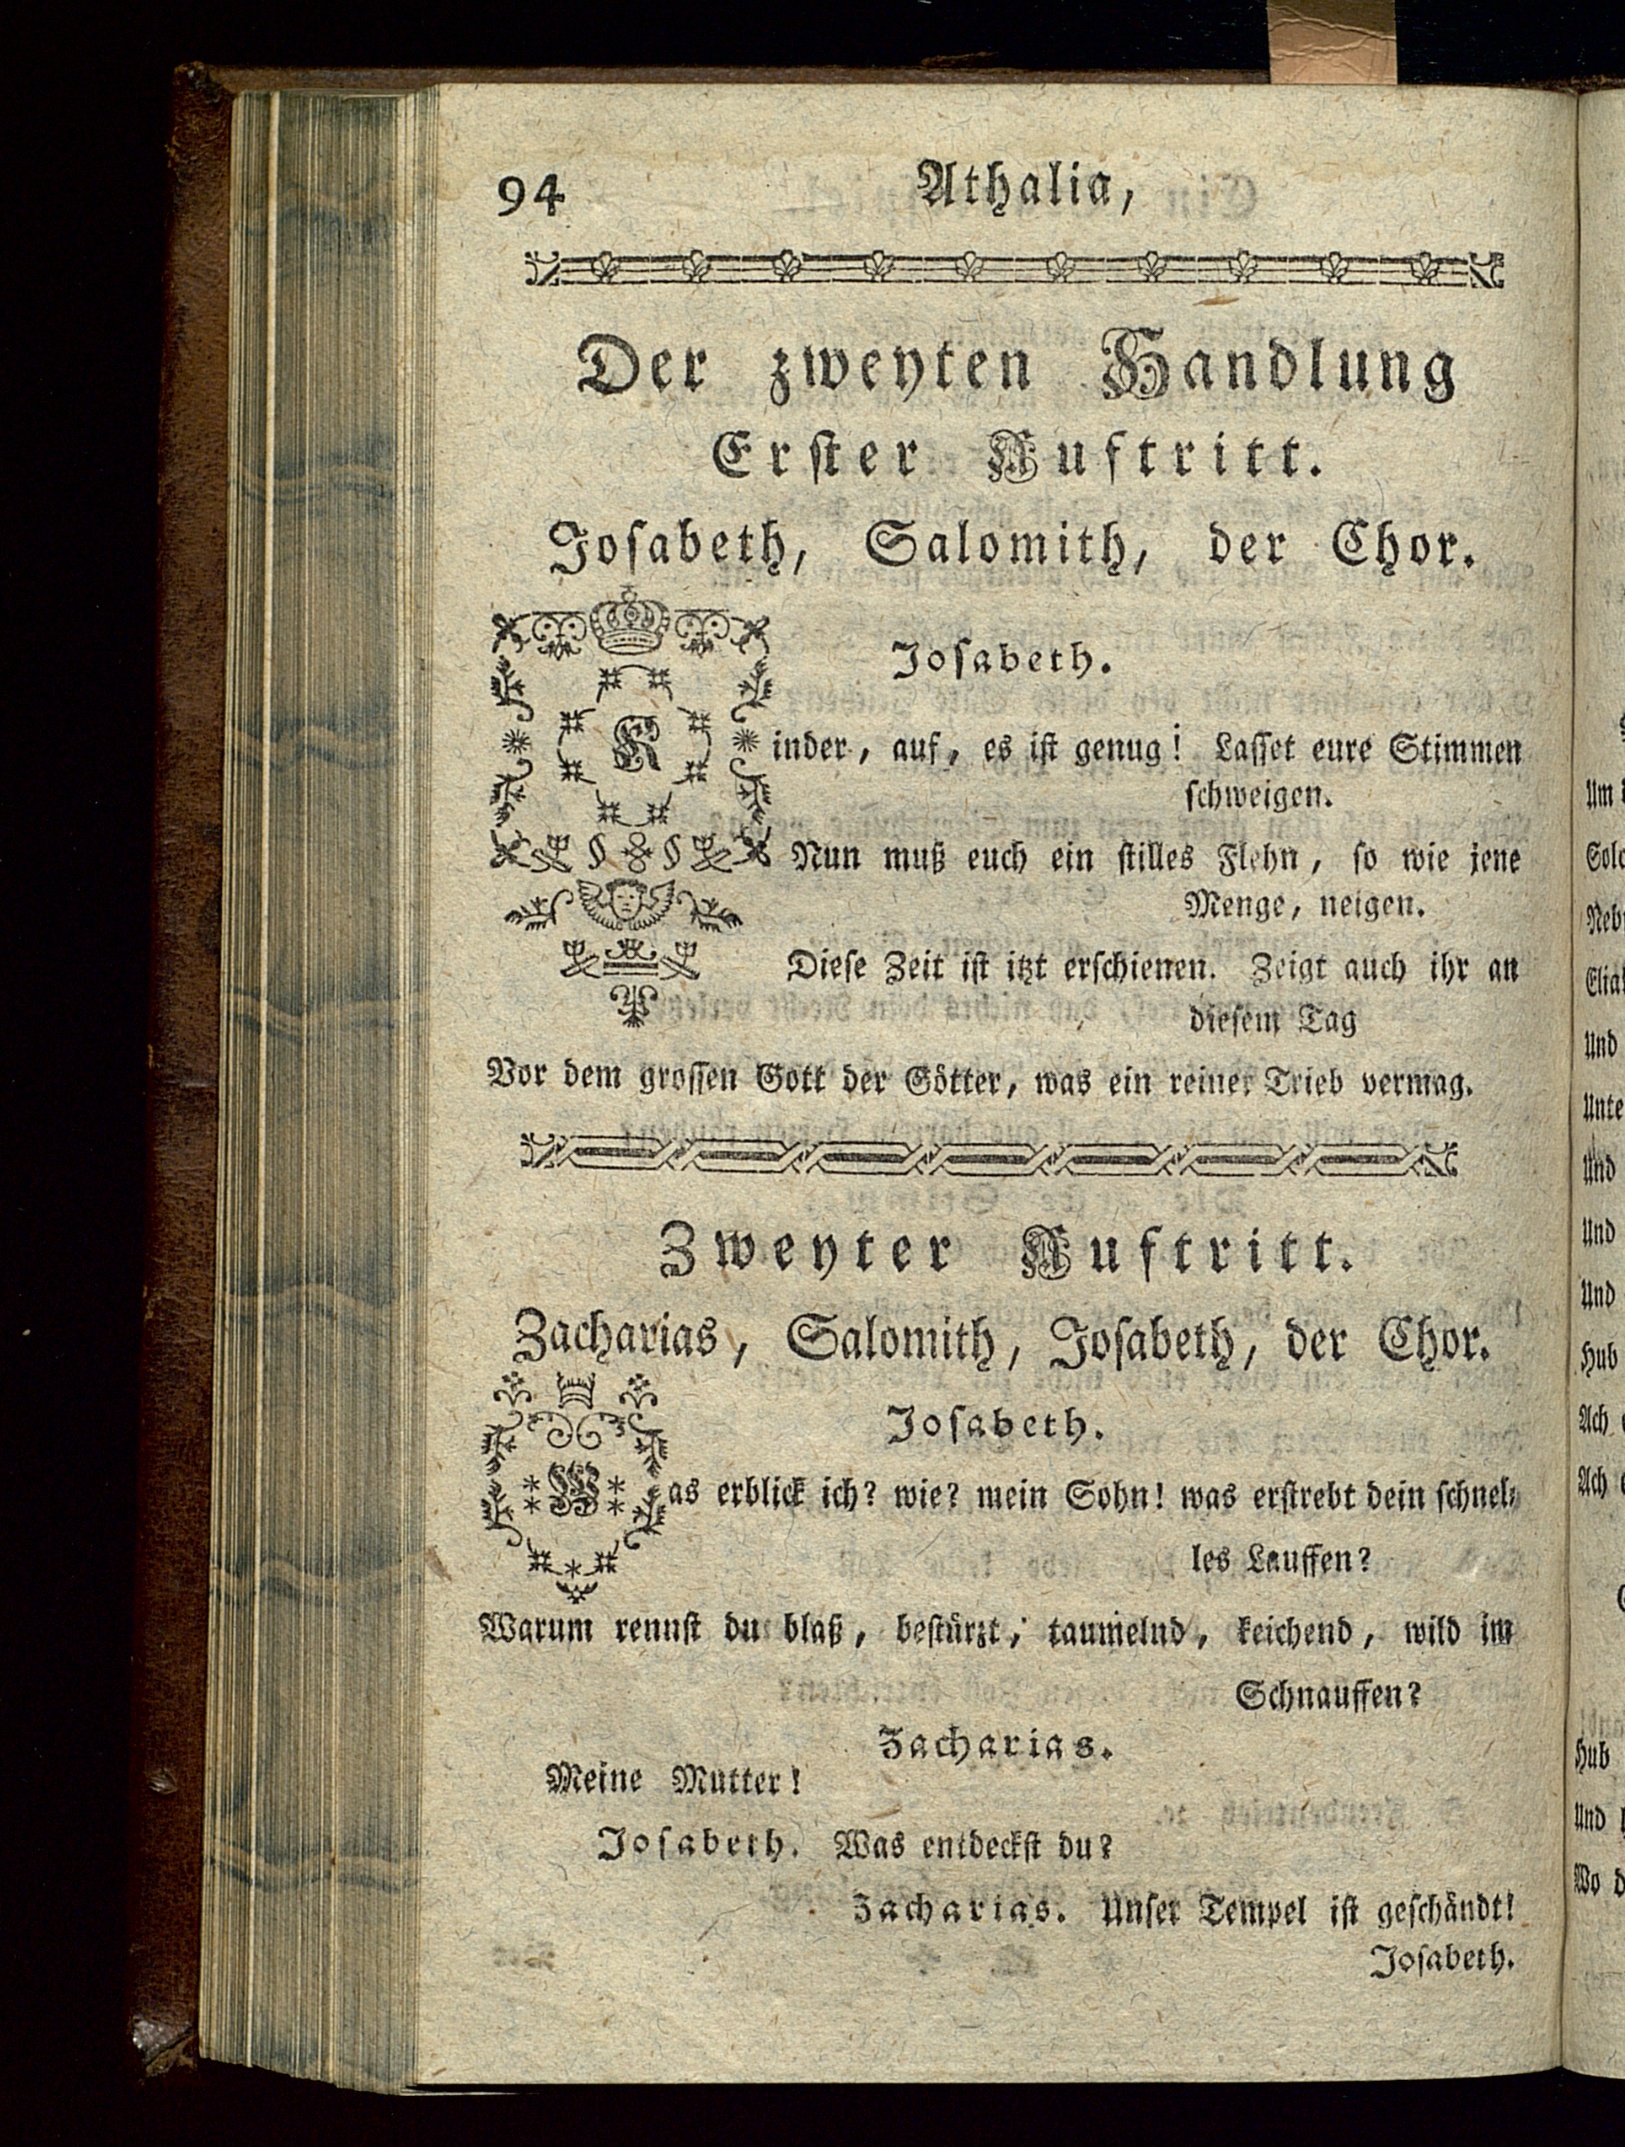 94 Athalia,
Der zweyten Handlung
Erster Auftritt.
Josabeth, Salomith, der Chor.
Josabeth.
Kinder, auf, es ist genug! Lasset eure Stimmen
schweigen.
Nun muß euch ein stilles Flehn, so wie jene
Menge, neigen.
Diese Zeit ist itzt erschienen. Zeigt auch ihr an
diesem Tag
Vor dem grossen Gott der Götter, was ein reiner Trieb vermag.
Zweyter Auftritt.
Zacharias, Salomith, Josabeth, der Chor.
Josabeth.
Was erblick ich? wie? mein Sohn! was erstrebt dein schnel-
les Lauffen?
Warum rennst du blaß, bestürzt, taumelnd, keichend, wild im
Schnauffen?
Zacharias.
Meine Mutter!
Josabeth. Was entdeckst du?
Zacharias. Unser Tempel ist geschändt!
Josabeth.
Um
Und
Und
Und
Und
Hub
Ach
Ach
Hub
Und
Wo